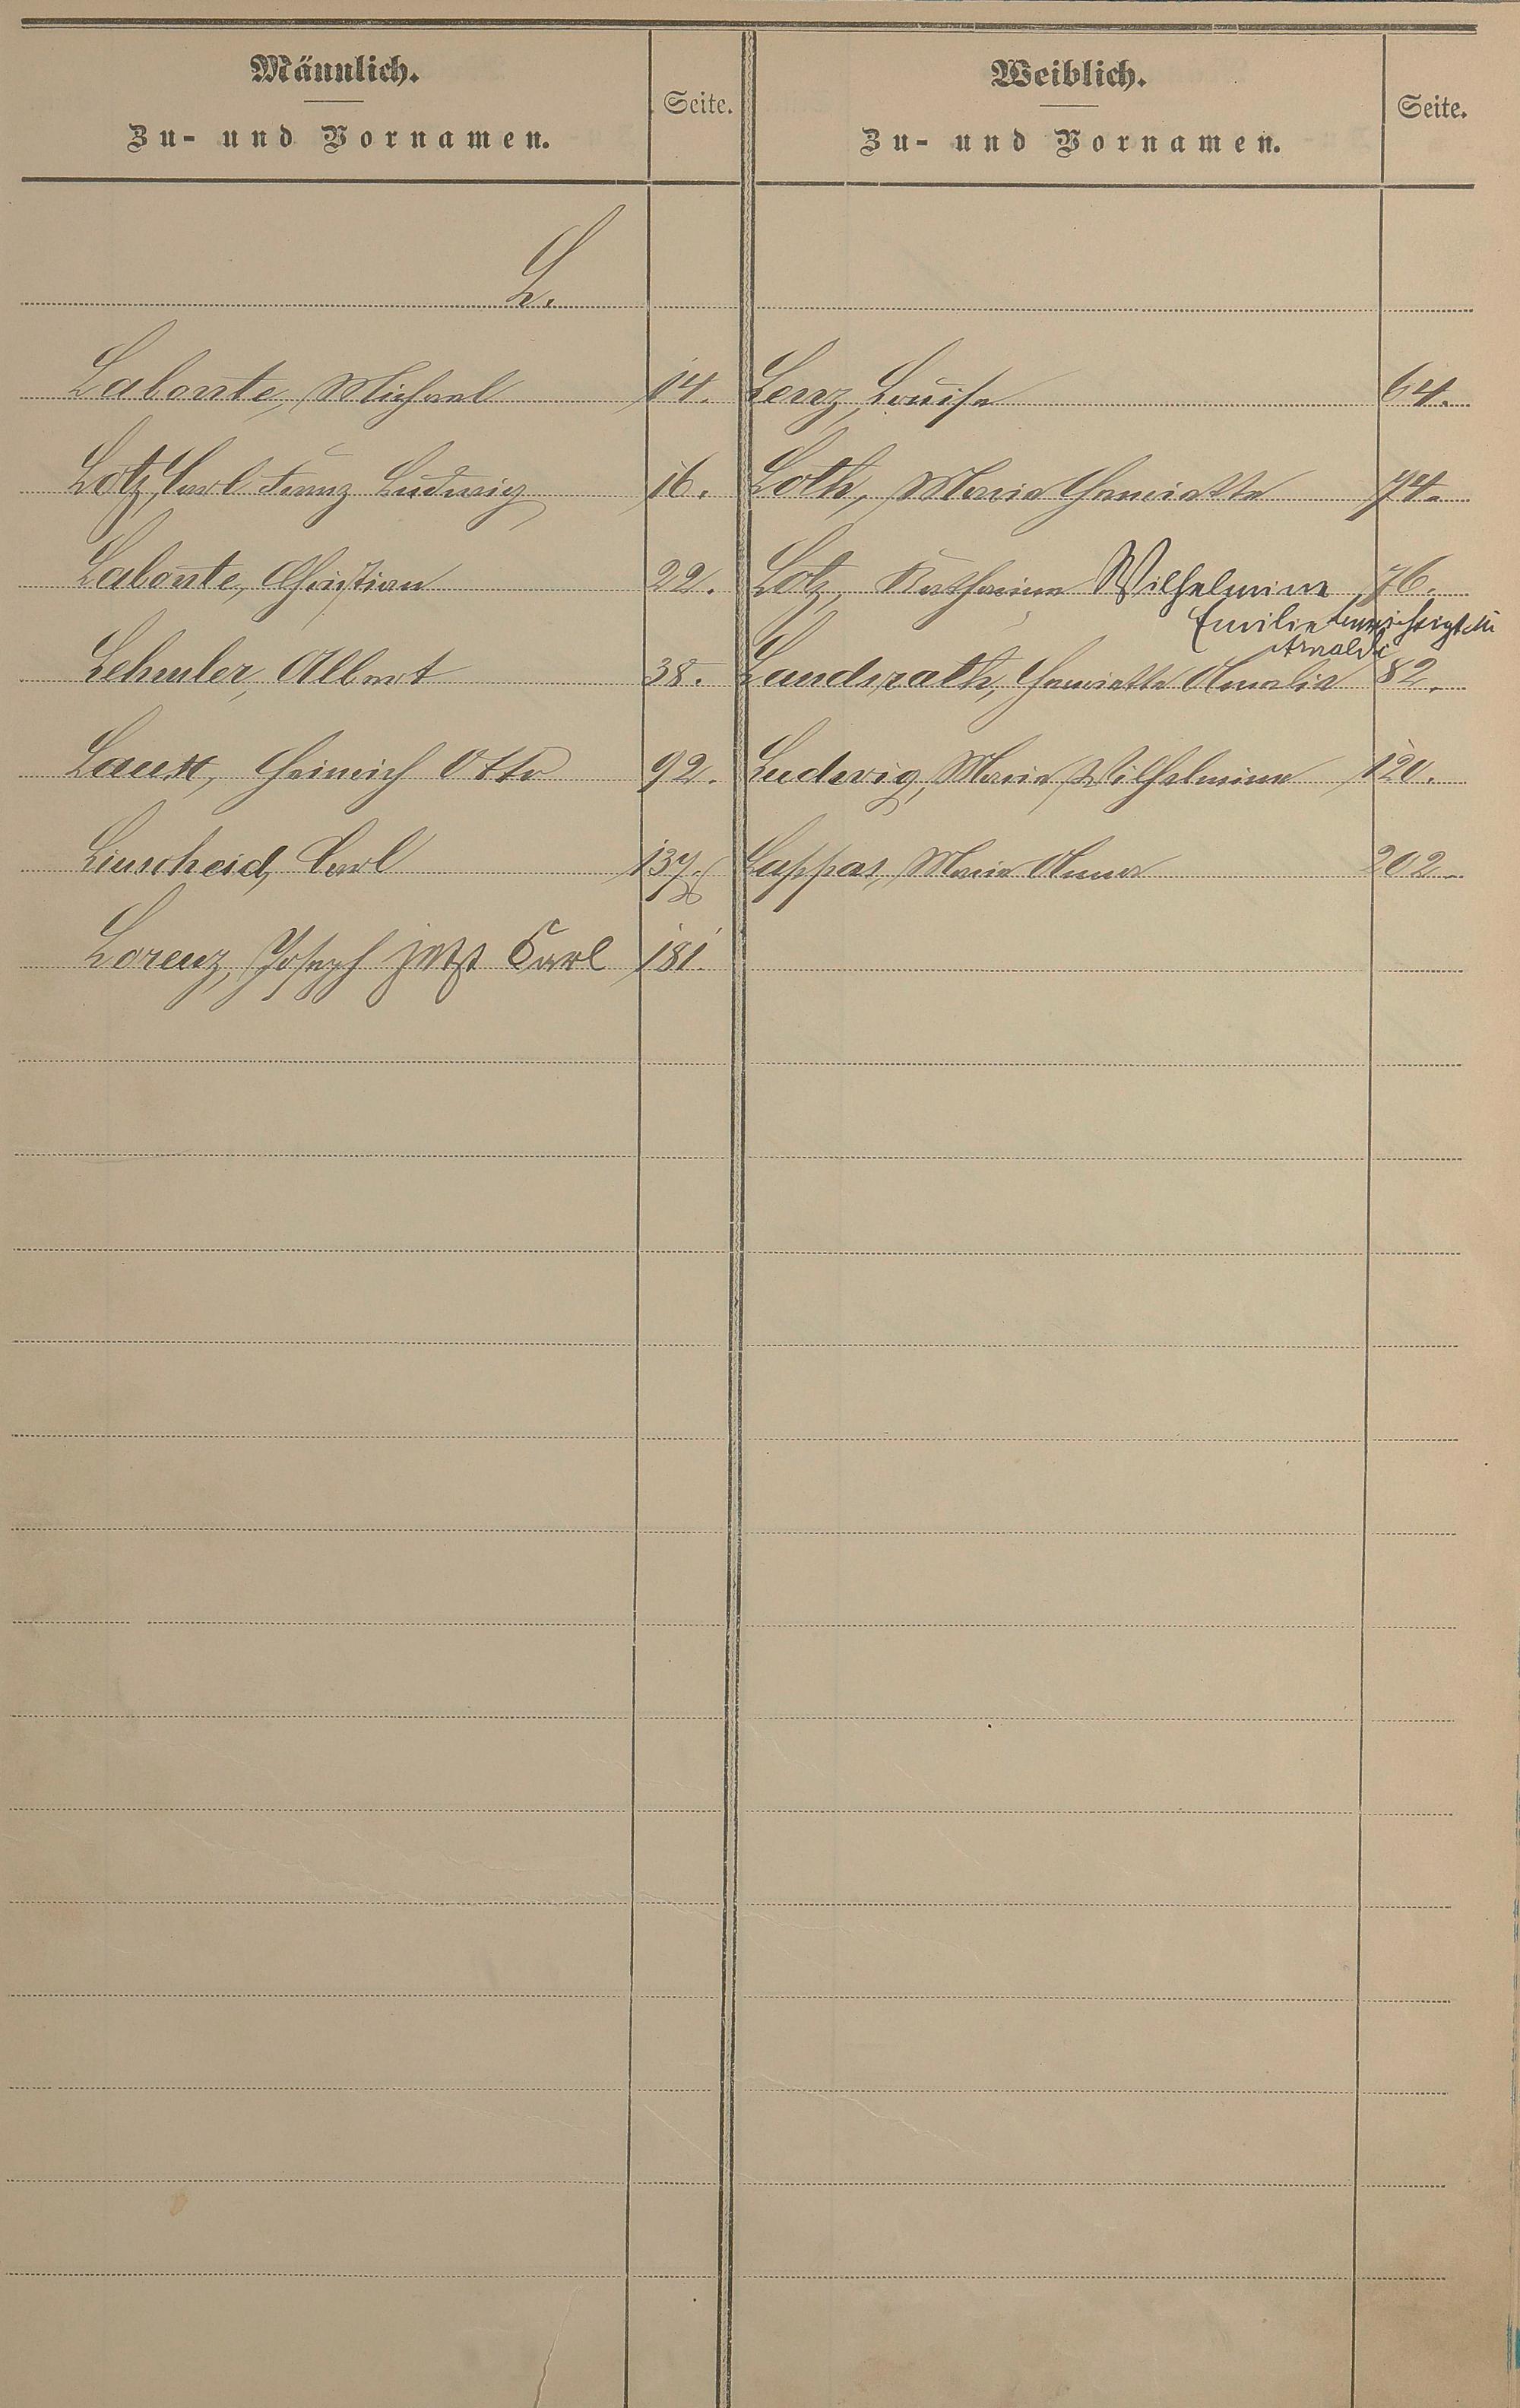 Männlich.
Zu- und Vornamen.
Seite.
Weiblich.
Zu- und Vornamen.
Seite.
L.
Labonte, Michael 14. Lenz, Louise 64.
Lotz, Carl Franz Ludwig 16. Loth, Maria Henriette 74.
Labonte, Christian 22. Lotz, Katharina Wilhelmine 76.
Emilie berichtigt
Arnoldi
Lehmler, Albert 38. Landsrath, Henriette Amalia 82.
Laux, Heinrich Otto 92. Ludwig, Maria Wilhelmine 120.
Linscheid, Carl 137. Lappas, Maria Anna 202.
Lorenz, Joseph jetzt Carl 181.